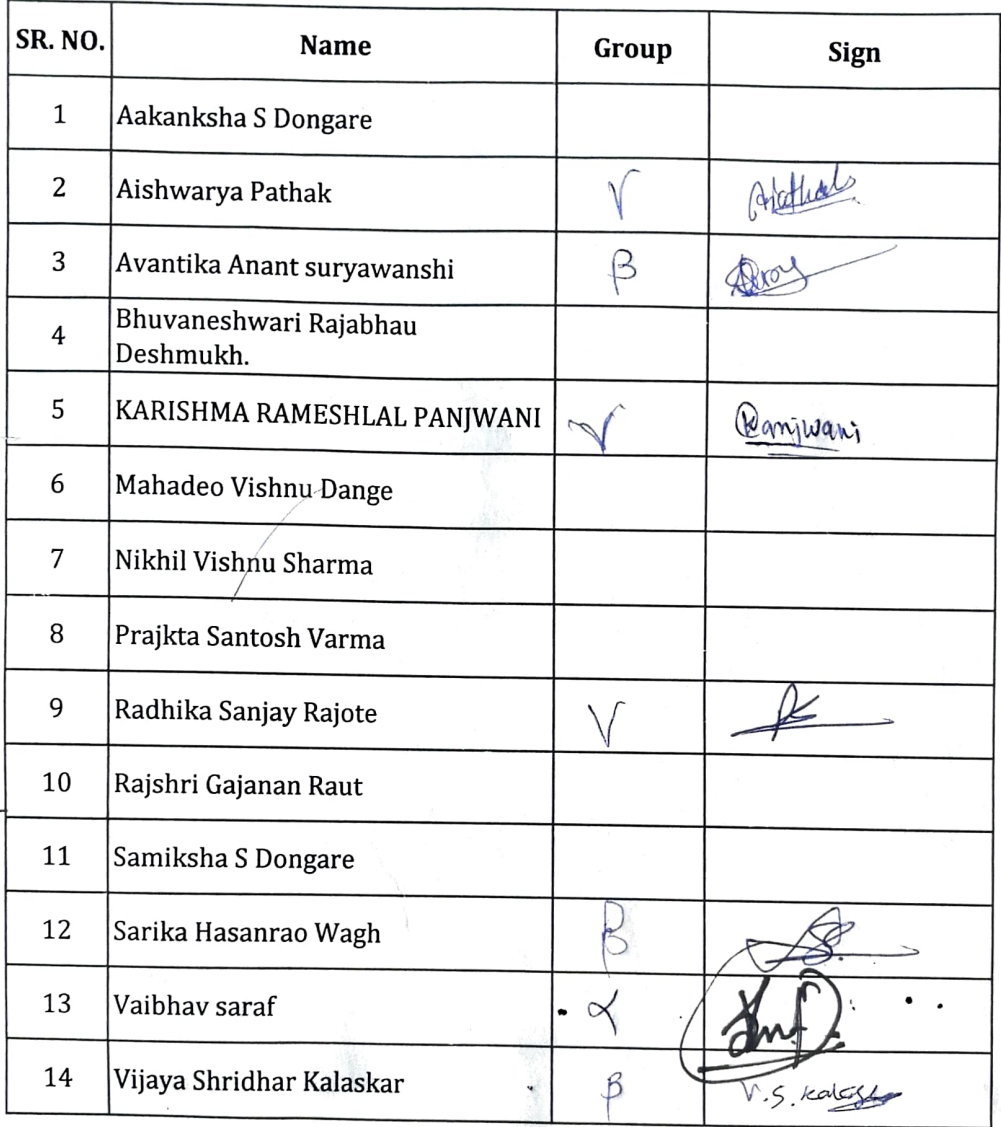 SR. NO. Name Group Sign
1 Aakanksha S Dongare
2 Aishwarya Pathak γ
3 Avantika Anant suryawanshi β
4 Bhuvaneshwari Rajabhau
Deshmukh.
5 KARISHMA RAMESHLAL PANJWANI γ Panjwani
6 Mahadeo Vishnu Dange
7 Nikhil Vishnu Sharma
8 Prajkta Santosh Varma
9 Radhika Sanjay Rajote γ
10 Rajshri Gajanan Raut
11 Samiksha S Dongare
12 Sarika Hasanrao Wagh β
13 Vaibhav saraf α
14 Vijaya Shridhar Kalaskar β V.S.